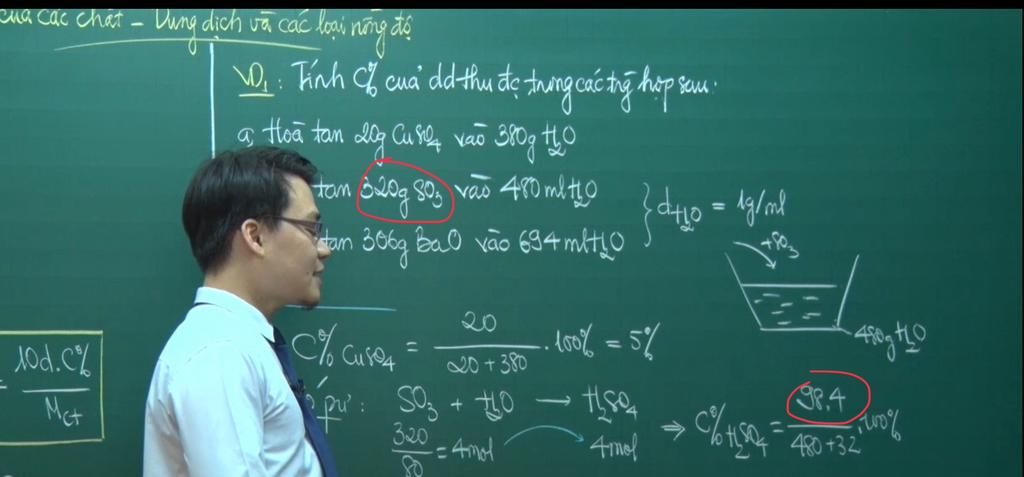 của các chất - Dung dịch và các loại nồng độ
VD1: Tính C% của dd thu đc trong các trg hợp sau:
a, Hoà tan 20g CuSO4 vào 380g H2O
tan 320g SO3 vào 480ml H2O
tan 306g BaO vào 694ml H2O
} dH2O = 1g/ml
+SO3
480g H2O
C% CuSO4 = 20 / (20 + 380) . 100% = 5%
10d.C% / Mct
pư: SO3 + H2O → H2SO4
320/80 = 4mol 4mol
⇒ C% H2SO4 = 98.4 / (480+32 .100%